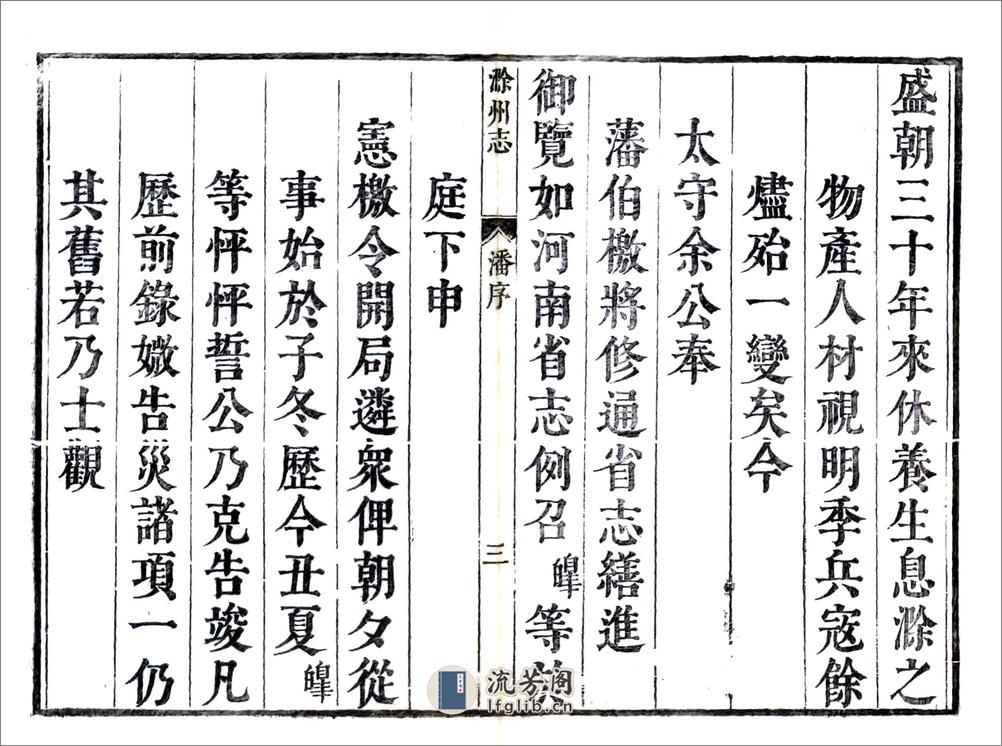 盛朝三十年來休養生息滁之
物產人材視明季兵寇餘
燼殆一變矣今
太守余公奉
藩伯檄將修通省志繕進
御覽如河南省志例召皞等於
滁州志 潘序 三
庭下申
憲檄令開局遴衆俾朝夕從
事始於子冬歷今丑夏皞
等怦怦誓公乃克告竣凡
歷前錄媺告災諸項一仍
其舊若乃士觀
流芳阁
lfglib.cn